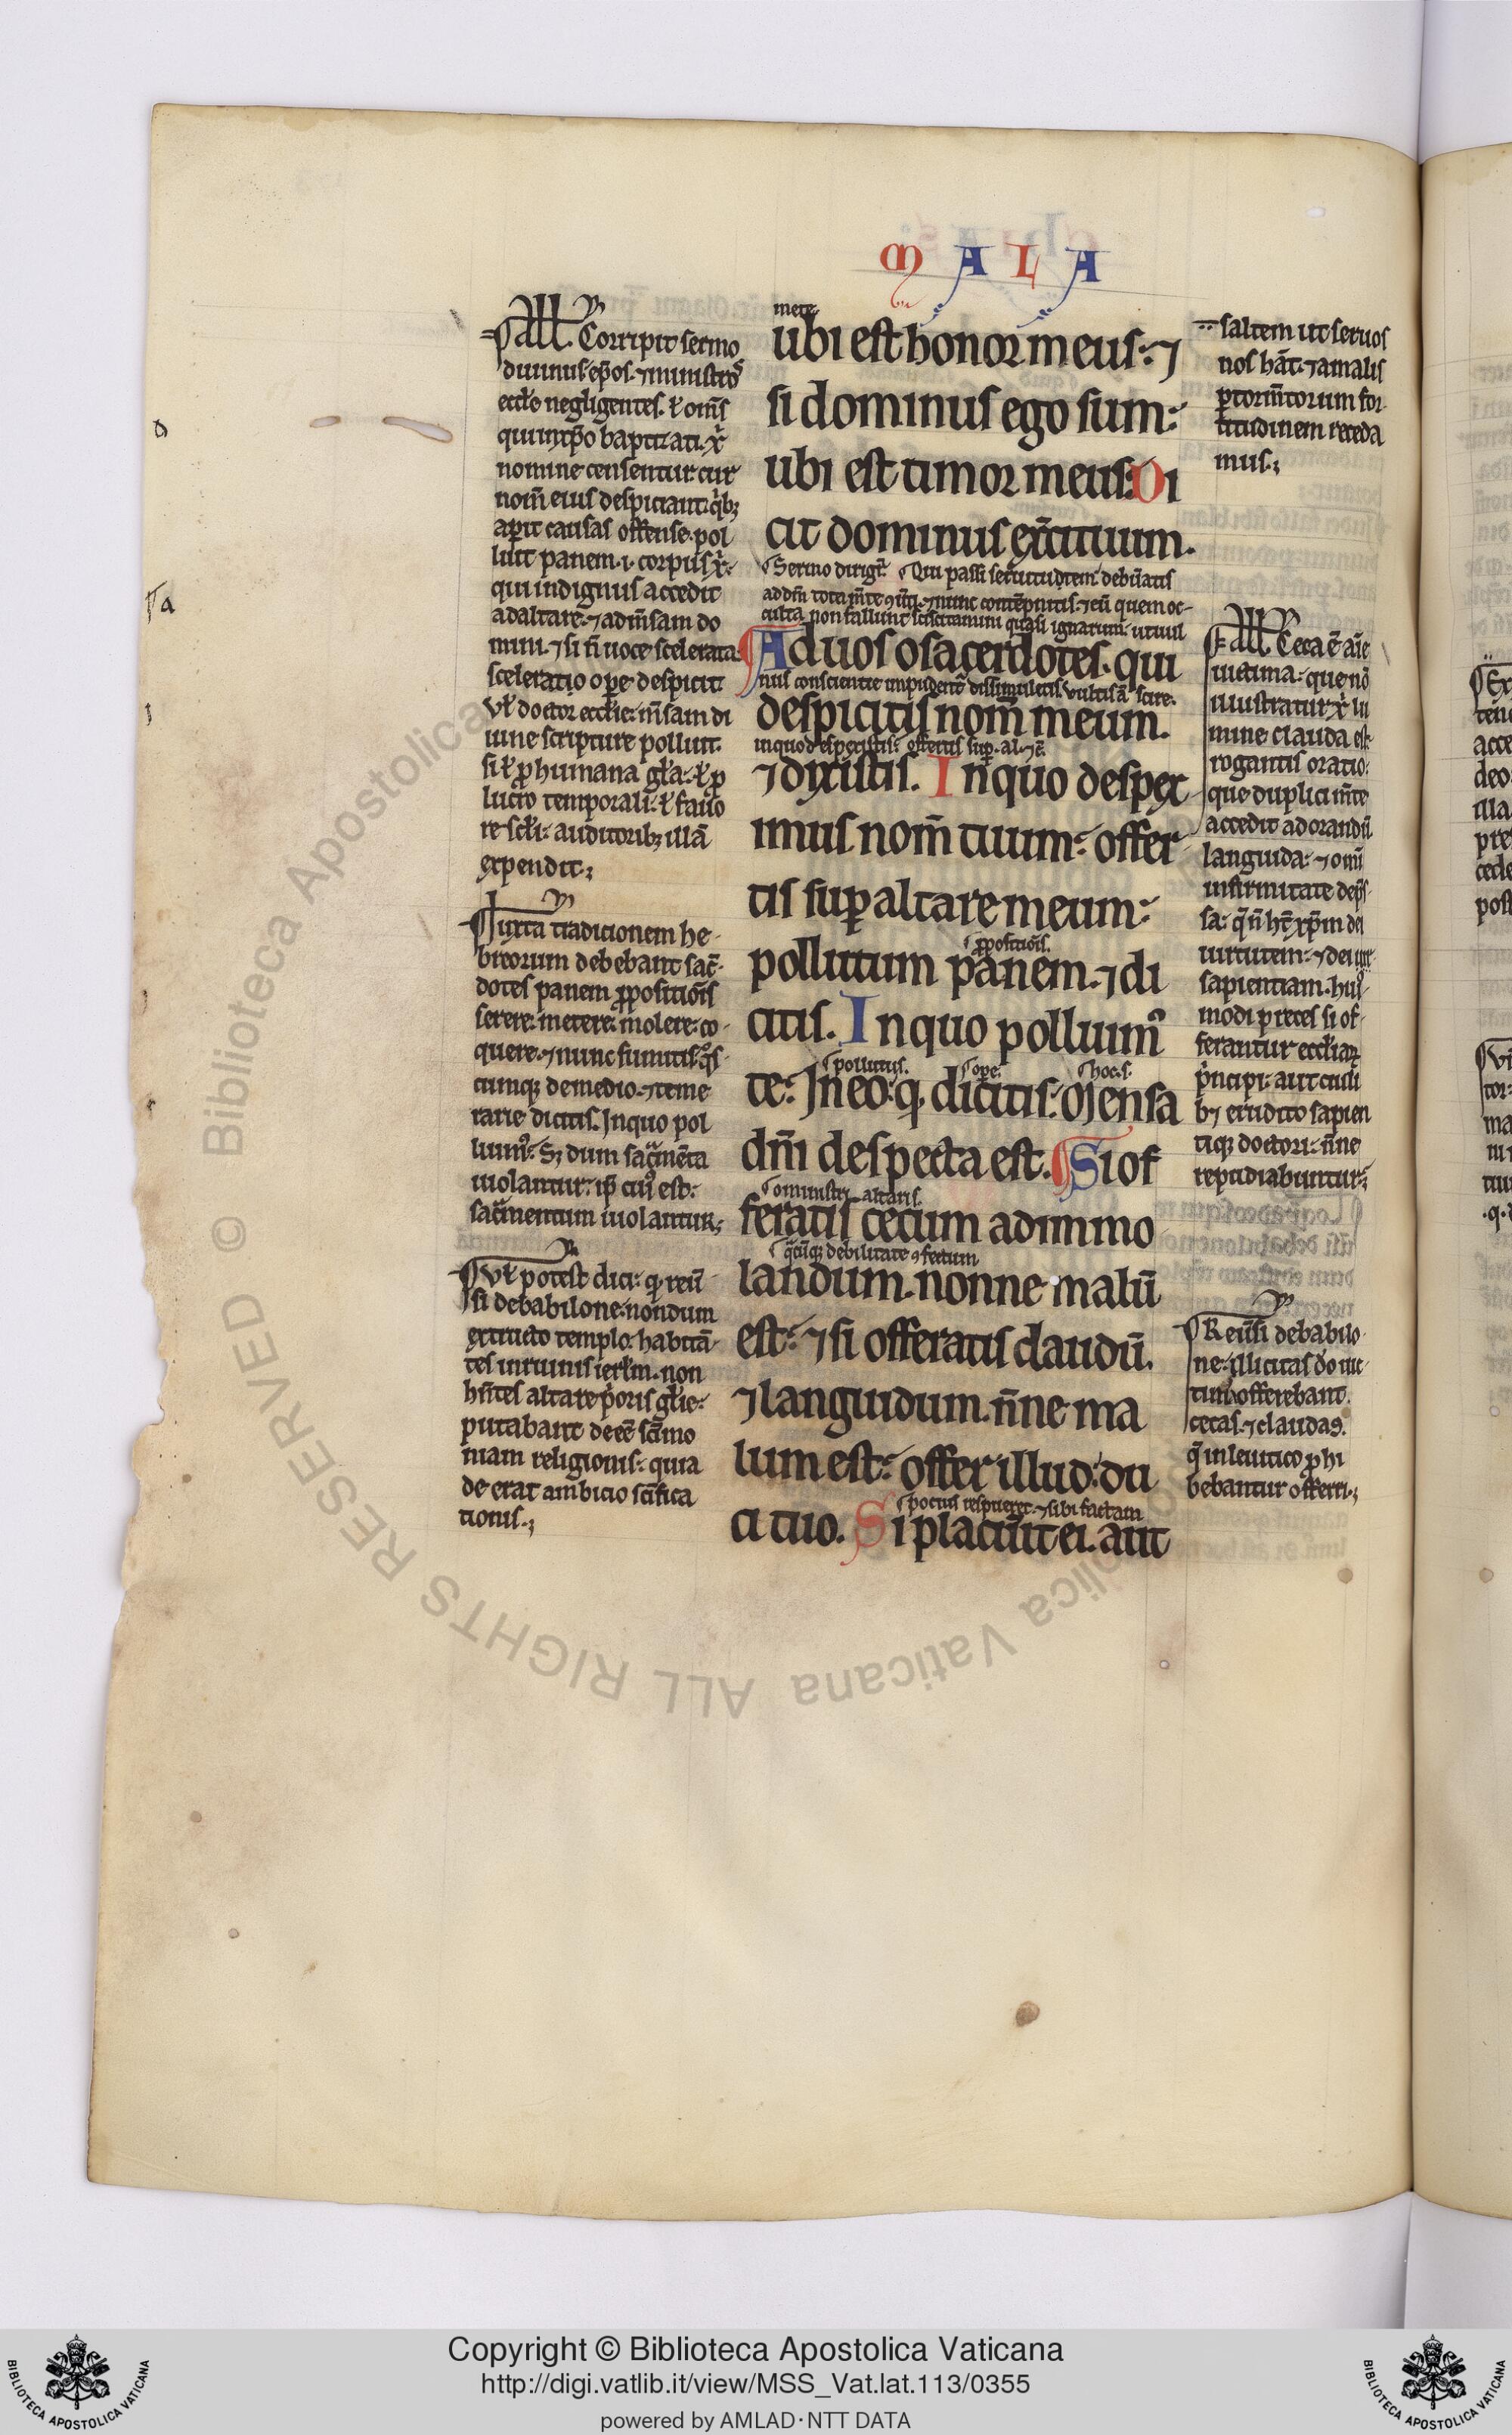 MALA
All. Corripit sermo
diuinus ep̄os. ⁊ ministros
eccl̄e negligentes. ł om̄s
qui in xp̄o baptizati. xp̄i
nomine censentur cur
nom̄ eius despiciant. qͥbꝫ
aꝑit causas offense. pol
luit panem .i. corpus xp̄i
qui indignus accedit
ad altare. ⁊ ad m̄sam do
mini. ⁊ si n̄ uoce scelerata:
scelerato oꝑe despicit
Vł doctor eccl̄ie: m̄sam di
uine scripture polluit.
si ł ꝓ humana gl̄a: ł ꝓ
lucro temporali: ł fauo
re scl̄i: auditoribꝫ illā
expendit;
Iuxta tradicionem he
breorum debebant sac̄
dotes panem ꝓpositiōis
serere: metere: molere: co
quere. ⁊ nunc sumitis qͦs
cumqꝫ de medio. ⁊ teme
rarie dicitis. In quo pol
luimꝰ: Sꝫ dum sac̄menta
uiolantur: ip̄e cuiꝰ est
sac̄mentum uiolantur;
Vł potest dici: q̄ reu̅
si de babilone: nondum
extructo templo: habitā
tes in ruinis ierl̄m. non
hn̄tes altare p̄oris gl̄ie:
putabant deee sc̄imo
niam religionis: quia
de erat ambicio sc̄ifica
tionis.;
mete
ubi est honor meus: ⁊
si dominus ego sum:
ubi est timor meus: Di
cit dominus exc̄ituum.
Sermo dirigit̄ Qui passi seruitutem debuatis
ad dm̄ tota m̄te ꝯuerti. ⁊ nunc contēpnitis. ⁊ eū quem oc
culta non fallunt sciscitamini quasi ignarum: ut uul
Ad uos o sacerdotes. qui
nus conscientie impudent̄ dissimuletis. Vultis ā scire.
despicitis nom̄ meum.
in quo despexistis: offertis suꝑ. al. ⁊c̄.
⁊ dixistis. In quo despex
imus nom̄ tuum: offer
tis suꝑ altare meum:
ꝓpositiōis.
pollutum panem. ⁊ di
citis. In quo polluimꝰ
pollutus. oꝑe. hoc. s.
te: In eo: q. dicitis: Mensa
dn̄i despecta est. Si of
o ministri altaris.
feratis cecum ad immo
qͣcūqꝫ debilitate ꝯfectum
landum. nonne malū
est: ⁊ si offeratis claudū.
⁊ languidum. n̄ne ma
lum est: offer illud: du
potius respueret. ⁊ sibi factam
ci tuo. Si placuīt ei. aut
saltem ut seruos
nos hāt. ⁊ a malis
ꝑ tormtorum for
titudinem receda
mus.;
All. Ceca ē aīe
uictima: que nō
illustratur xp̄i lu
mine. clauda est
rogantis oratio:
que duplici m̄te
accedit ad orandū
languida: ⁊ omi
infirmitate dep̄s
sa: q̄ n̄ hт xp̄m dei
uirtutem: ⁊ dei
sapientiam. huiꝰ
modi preces si of
ferantur eccl̄iaꝝ
p̄ncipi: aut cuili
bꝫ erudito sapien
tiqꝫ doctori: n̄ne
repudiabuntur:
Reu̅si de babilo
ne: illicitas do uic
timas offerebant.
cecas. ⁊ claudas.
q̄ in leuitico ꝓhi
bebantur offerri.;
a
Copyright © Biblioteca Apostolica Vaticana
http://digi.vatlib.it/view/MSS_Vat.lat.113/0355
powered by AMLAD·NTT DATA
BIBLIOTECA APOSTOLICA VATICANA
BIBLIOTECA APOSTOLICA VATICANA
© Biblioteca Apostolica Vaticana ALL RIGHTS RESERVED